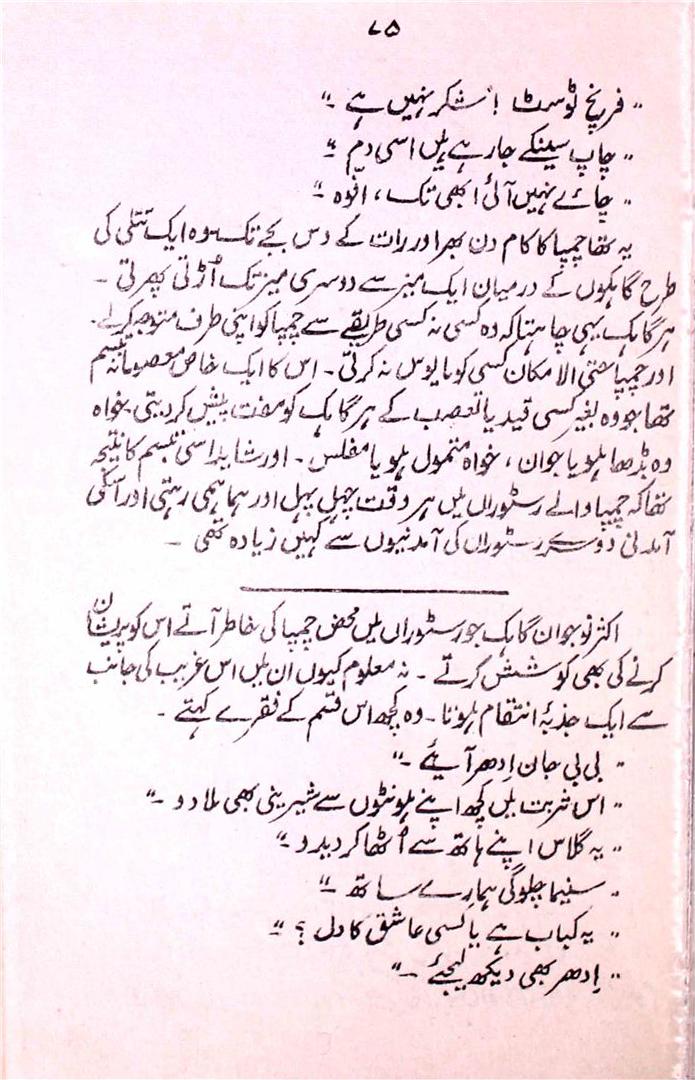 ۷۵
"فرنچ ٹوسٹ! شکر نہیں ہے۔"
"چاپ سینکے جا رہے ہیں اسی دم"
"چائے نہیں آئی ابھی تک، افوہ"
یہ تھا چمپا کا کام دن بھر اور رات کے دس بجے تک۔ وہ ایک تتلی کی
طرح گاہکوں کے درمیان ایک میز سے دوسری میز تک اُڑتی پھرتی۔
ہر گاہک یہی چاہتا کہ وہ کسی نہ کسی طریقے سے چمپا کو اپنی طرف متوجہ کر لے۔
اور چمپا حتی الامکان کسی کو مایوس نہ کرتی۔ اس کا ایک خاص معصومانہ تبسم
تھا جو وہ بغیر کسی قید یا تعصب کے ہر گاہک کو مفت پیش کر دیتی۔ خواہ
وہ بڈھا ہو یا جوان، خواہ متمول ہو یا مفلس۔ اور شاید اسی تبسم کا نتیجہ
تھا کہ چمپا والے رسٹوراں میں ہر وقت چہل پہل اور ہماہمی رہتی اور اسکی
آمدنی دوسرے رسٹوراں کی آمدنیوں سے کہیں زیادہ تھی۔
اکثر نوجوان گاہک جو رسٹوراں میں محض چمپا کی خاطر آتے اس کو پریشان
کرنے کی بھی کوشش کرتے۔ نہ معلوم کیوں ان میں اس غریب کی جانب
سے ایک جذبۂ انتقام ہوتا۔ وہ کچھ اس قسم کے فقرے کہتے۔
"بی بی جان اِدھر آیئے۔"
"اس شربت میں کچھ اپنے ہونٹوں سے شیرینی بھی ملا دو۔"
"یہ گلاس اپنے ہاتھ سے اُٹھا کر دیدو۔"
"سنیما چلوگی ہمارے ساتھ۔"
"یہ کباب ہے یا کسی عاشق کا دل؟"
"اِدھر بھی دیکھ لیجئے۔"